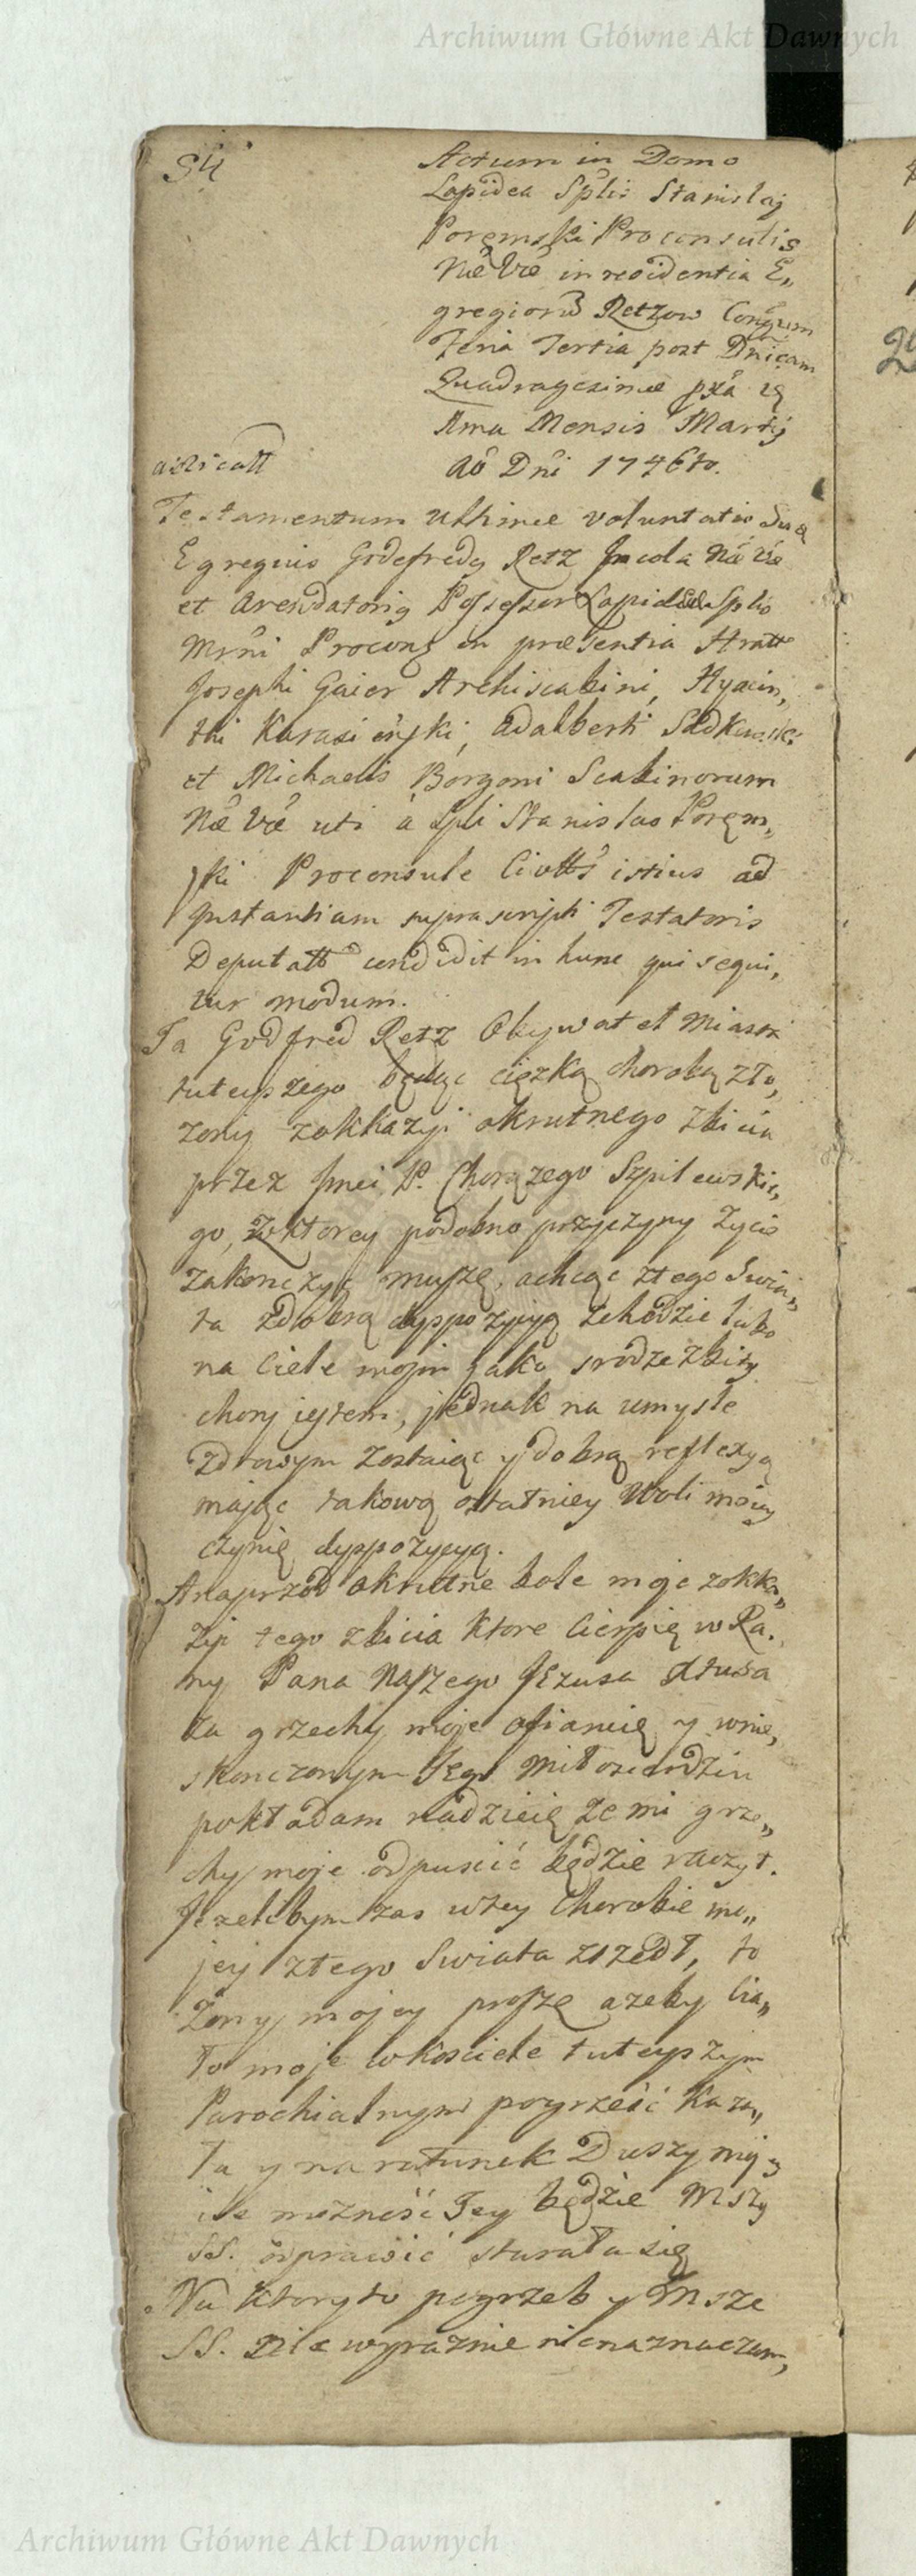 Archiwum Główne Akt Dawnych
94
Actum in Domo
Lapidea Splis Stanislaj
Poręmski Proconsulis
Næ Væ in residentia E„
gregiorũ Retzow Congum
Feria Tertia post Dnicam
Quadragesimæ pxa
Ama Mensis Martij
Aõ Dñi 1746to.
Testamentum Ultimæ voluntatis Suæ
Egregius Godefredg Retz Incola Næ Væ
et Arendatorig Possessor Lapideæ Splis
Mrñi Procons in præsentia Hratt
Josephi Gaier Archiscabini, Hyacin„
thi Karasi ński, Adalberti Sadkowski
et Michaelis Borzoni Scabinorum
Næ Væ uti à Spli Stanislao Poręm„
ski Proconsule Civttis istius ad
Instantiam suprascripti Testatoris
Deputatt condidit in hunc qui sequi,
tur modum.
Ja Godfred Retz Obywatel Miasta
tuteyszego będąc ciężką chorobą zło,
żony zokkazyi okrutnego zbicia
przez Jmci P. Chorążego Szpilewskie,
go, zktorey podobno przyczyny życie
zakonczyć muszę, achcąc ztego Swia„
ta zdobrą dyspozycyą zchodzić lubo
na ciele moim jako srodze zbity
chory iestem, jednak na umysle
zdrowym zostaiąc y dobrą reflexyą
mając takową ostatniey Woli mojey
czynię dyspozycyą.
Anaprzod okrutne bole moje zokka„
zyi tego zbicia ktore cierpię w Ra„
ny Pana Naszego Jezusa Xtusa
za grzechy moje ofiaruię y wnie,
skonczonym Jego Miłosierdziu
pokładam nadzieię ze mi grze„
chy moje odpuscić będzie raczył.
Jezelibym zas wtey Chorobie mo„
jey ztego Swiata zszedł, to
Zony mojey proszę azeby Cia„
ło moje wkosciele tuteyszym
Parochialnym pogrześć kaza„
ła y na ratunek Duszy mey
ile moznośc Jey będzie Mszy
SS. odprawić starała się
Na ktoryto pogrzeb y Msze
SS. ile wyraznie nienaznaczam,
Archiwum Główne Akt Dawnych